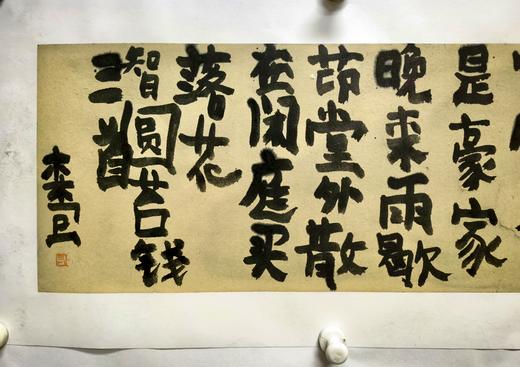 是豪家
晚来雨歇
茆堂外散
在闲庭买
落花
智圆苔钱
三首